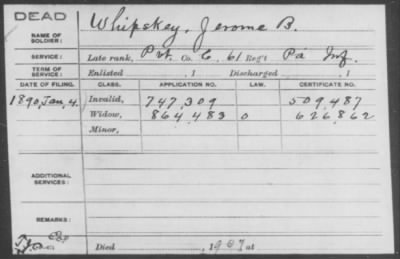 DEAD
NAME OF SOLDIER: Whipskey, Jerome B.
SERVICE: Late rank, Prt. Co. C, 61 Reg't Pa Inf.
TERM OF SERVICE: Enlisted , 1 Discharged , 1
DATE OF FILING. CLASS. APPLICATION NO. LAW. CERTIFICATE NO.
1890, Jan, 4. Invalid, 747,309 509,487
Widow, 864,483 0 626,862
Minor,
ADDITIONAL SERVICES:
REMARKS:
Died , 1907 at